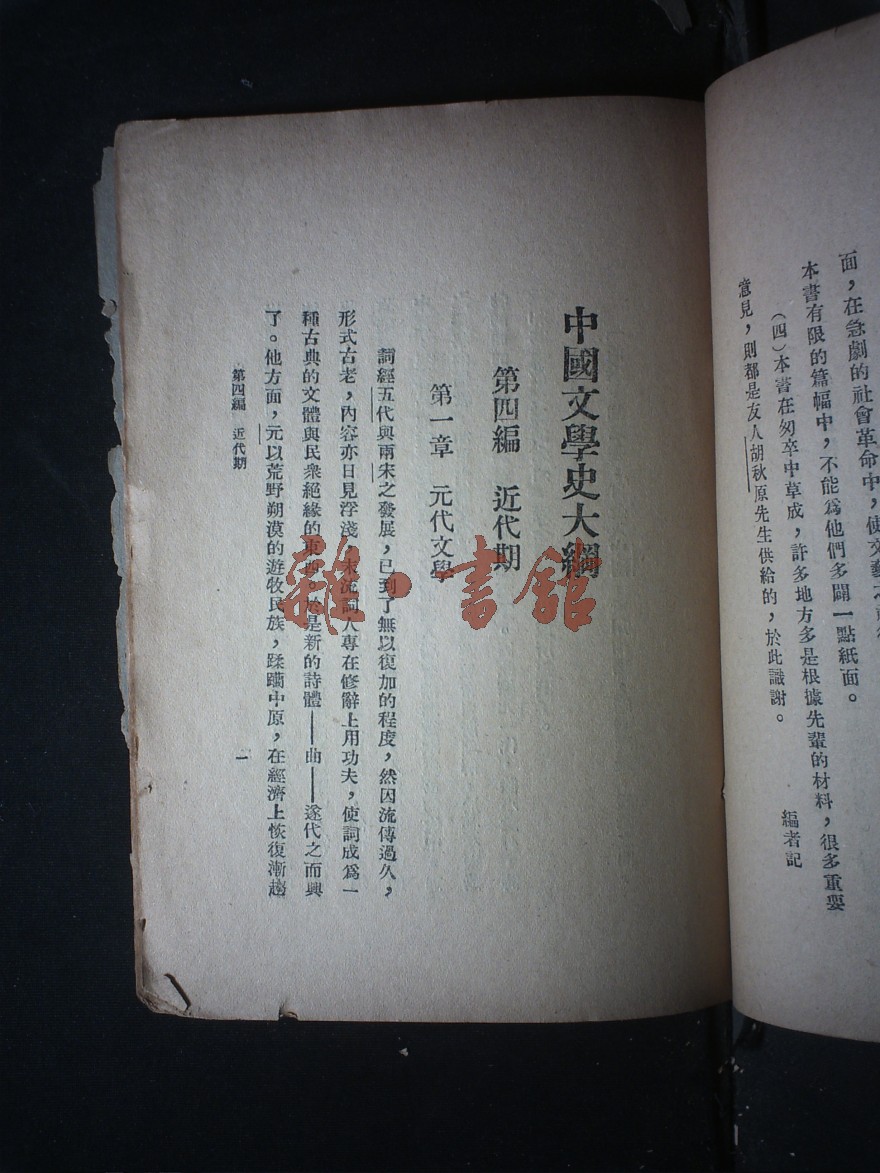 面，在急劇的社會革命中，使文藝之
本書有限的篇幅中，不能爲他們多闢一點紙面。
（四）本書在匆卒中草成，許多地方多是根據先輩的材料，很多重要
意見，則都是友人胡秋原先生供給的，於此識謝。
編者記
中國文學史大綱
第四編　近代期
第一章　元代文學
詞經五代與兩宋之發展，已到了無以復加的程度，然因流傳過久，
形式古老，內容亦日見浮淺，末流詞人專在修辭上用功夫，使詞成爲一
種古典的文體與民衆絕緣的東西。於是新的詩體——曲——遂代之而興
了。他方面，元以荒野朔漠的遊牧民族，蹂躪中原，在經濟上恢復漸趨
第四編　近代期
一
雜·書館